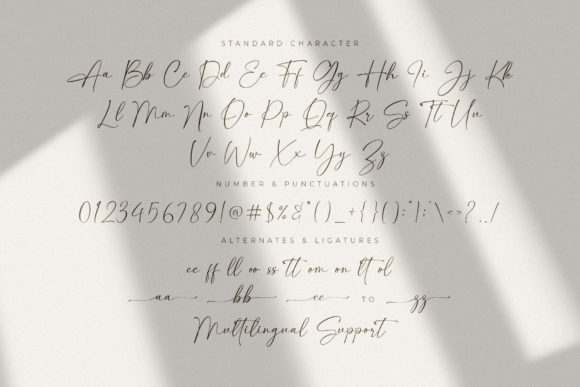 STANDARD CHARACTER
Aa Bb Cc Dd Ee Ff Gg Hh Ii Jj Kk
Ll Mm Nn Oo Pp Qq Rr Ss Tt Uu
Vv Ww Xx Yy Zz
NUMBER & PUNCTUATIONS
0123456789!@#$%&*()_+{}():"|:'\<>?../
ALTERNATES & LIGATURES
ee ff ll oo ss tt om on lt ol
aa bb cc TO zz
Multilingual Support